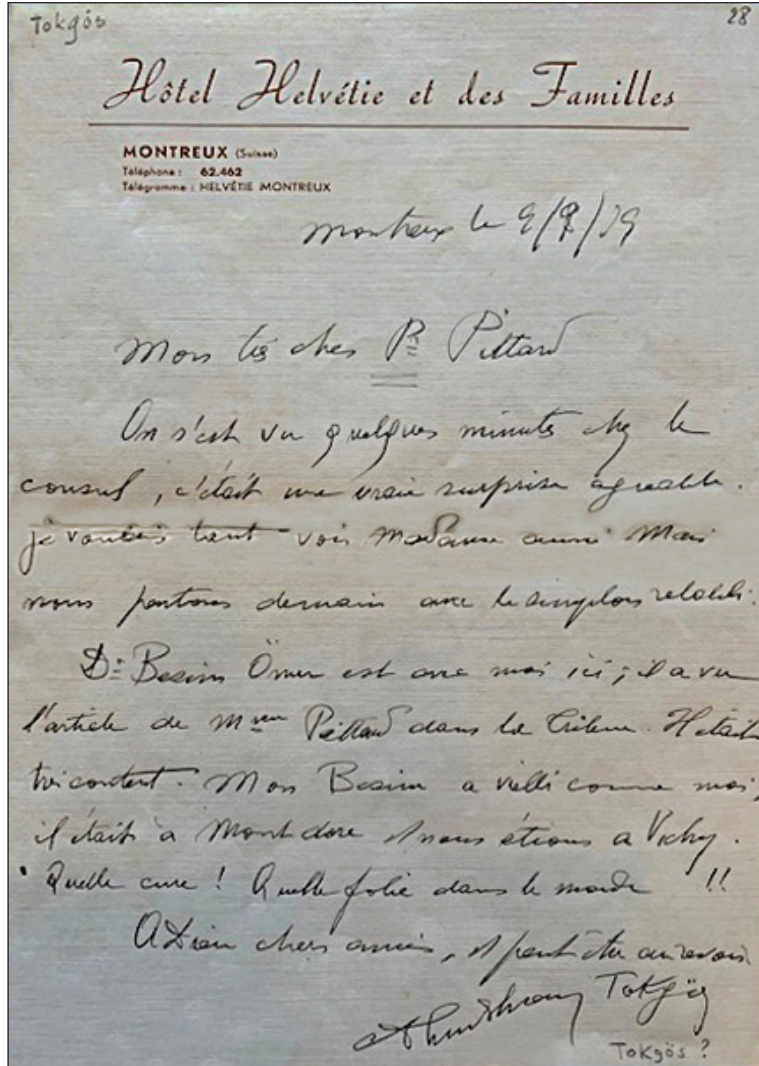 Tokgös
28
Hôtel Helvétie et des Familles
MONTREUX (Suisse)
Téléphone : 62.462
Télégramme : HELVÉTIE MONTREUX
Montreux le 9/9/39
Mon très cher Pr Pittard
On s'est vu quelques minutes chez le
consul, c'était une vraie surprise agreable.
je voulais tant voir Madame aussi Mais
nous partons demain avec le simplon retabli.
Dr Besim Ömer est avec moi ici ; il a vu
l'article de Mme Pittard dans la Tribune. Il était
très content. Mon Besim a vielli comme moi,
il était à Mont dore et nous étions a Vichy.
Quelle cure ! Quelle folie dans le monde !!
A Dieu chers amis, et peut être au revoir
Tokgöz
Tokgös ?